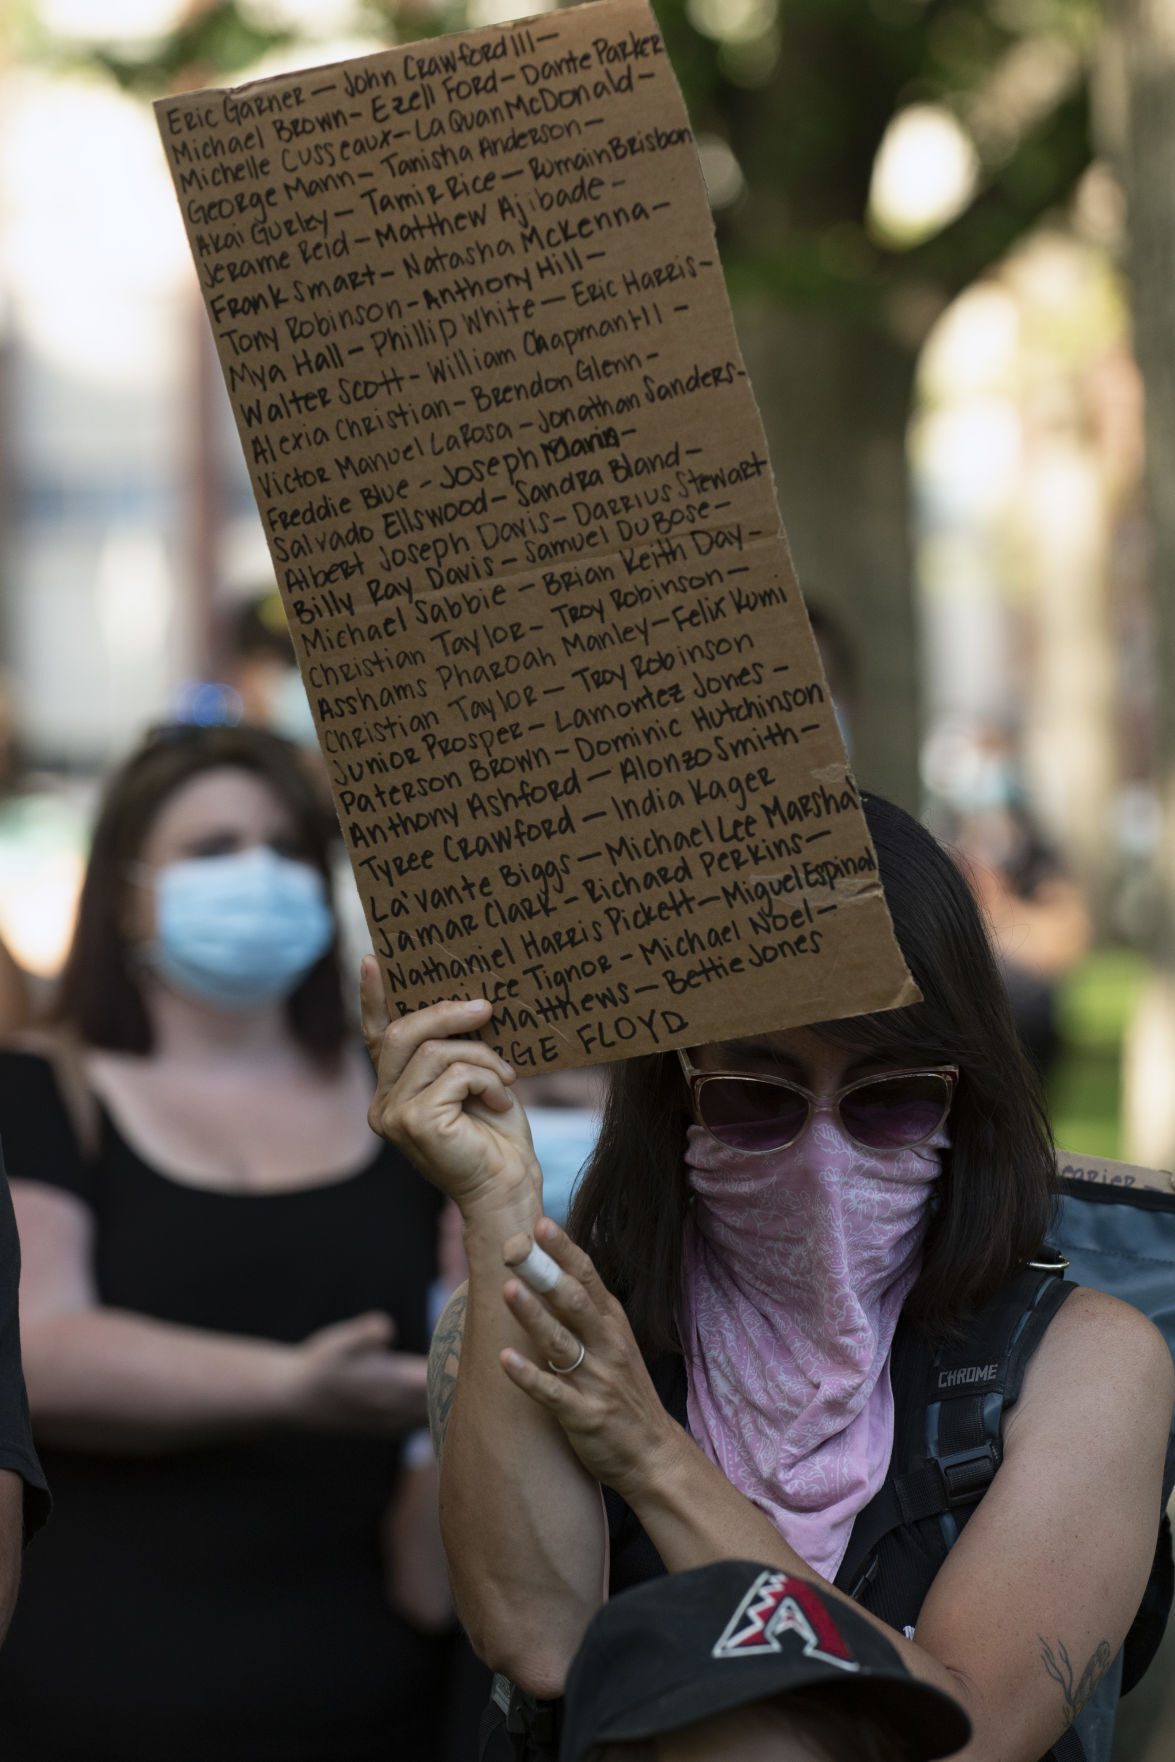 Eric Garner — John Crawford III —
Michael Brown - Ezell Ford - Dante Parker
Michelle Cusseaux - LaQuan McDonald -
George Mann - Tanisha Anderson -
Akai Gurley - Tamir Rice - Rumain Brisbon
Jerame Reid - Matthew Ajibade -
Frank Smart - Natasha McKenna -
Tony Robinson - Anthony Hill -
Mya Hall - Phillip White - Eric Harris -
Walter Scott - William Chapman II -
Alexia Christian - Brendon Glenn -
Victor Manuel LaRosa - Jonathan Sanders -
Freddie Blue - Joseph Mann -
Salvado Ellswood - Sandra Bland -
Albert Joseph Davis - Darrius Stewart
Billy Ray Davis - Samuel DuBose -
Michael Sabbie - Brian Keith Day -
Christian Taylor - Troy Robinson -
Asshams Pharoah Manley - Felix Kumi
Christian Taylor - Troy Robinson
Junior Prosper - Lamontez Jones -
Paterson Brown - Dominic Hutchinson
Anthony Ashford - Alonzo Smith -
Tyree Crawford - India Kager
La'Vante Biggs - Michael Lee Marshall
Jamar Clark - Richard Perkins -
Nathaniel Harris Pickett - Miguel Espinal
Lee Tignor - Michael Noel -
Matthews - Bettie Jones
RGE FLOYD
CHROME
A